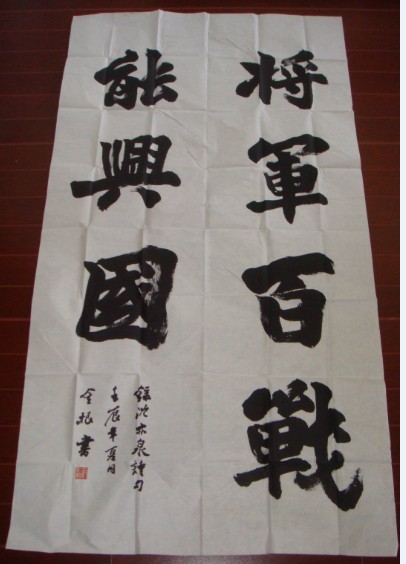 将軍百戰
能興國
錄沈亦泉詩句
壬辰年夏日
金振書